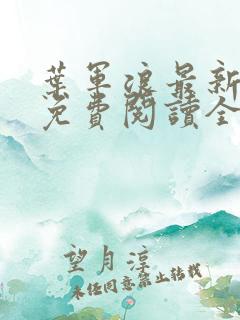 葉軍浪最新
免費閱讀全
望月淳
未經同意禁止轉載